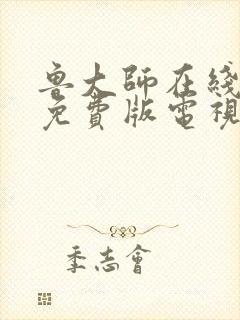 鲁大師在綫
免費版電視
季志會